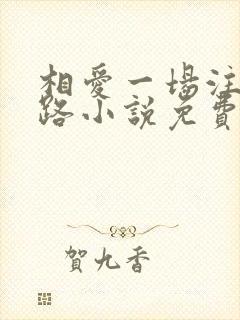 相愛一場注
路小說免費
賀九香